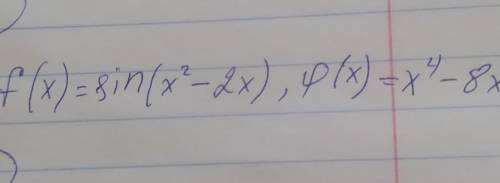 f(x) = sin(x² - 2x), φ(x) = x⁴ - 8x